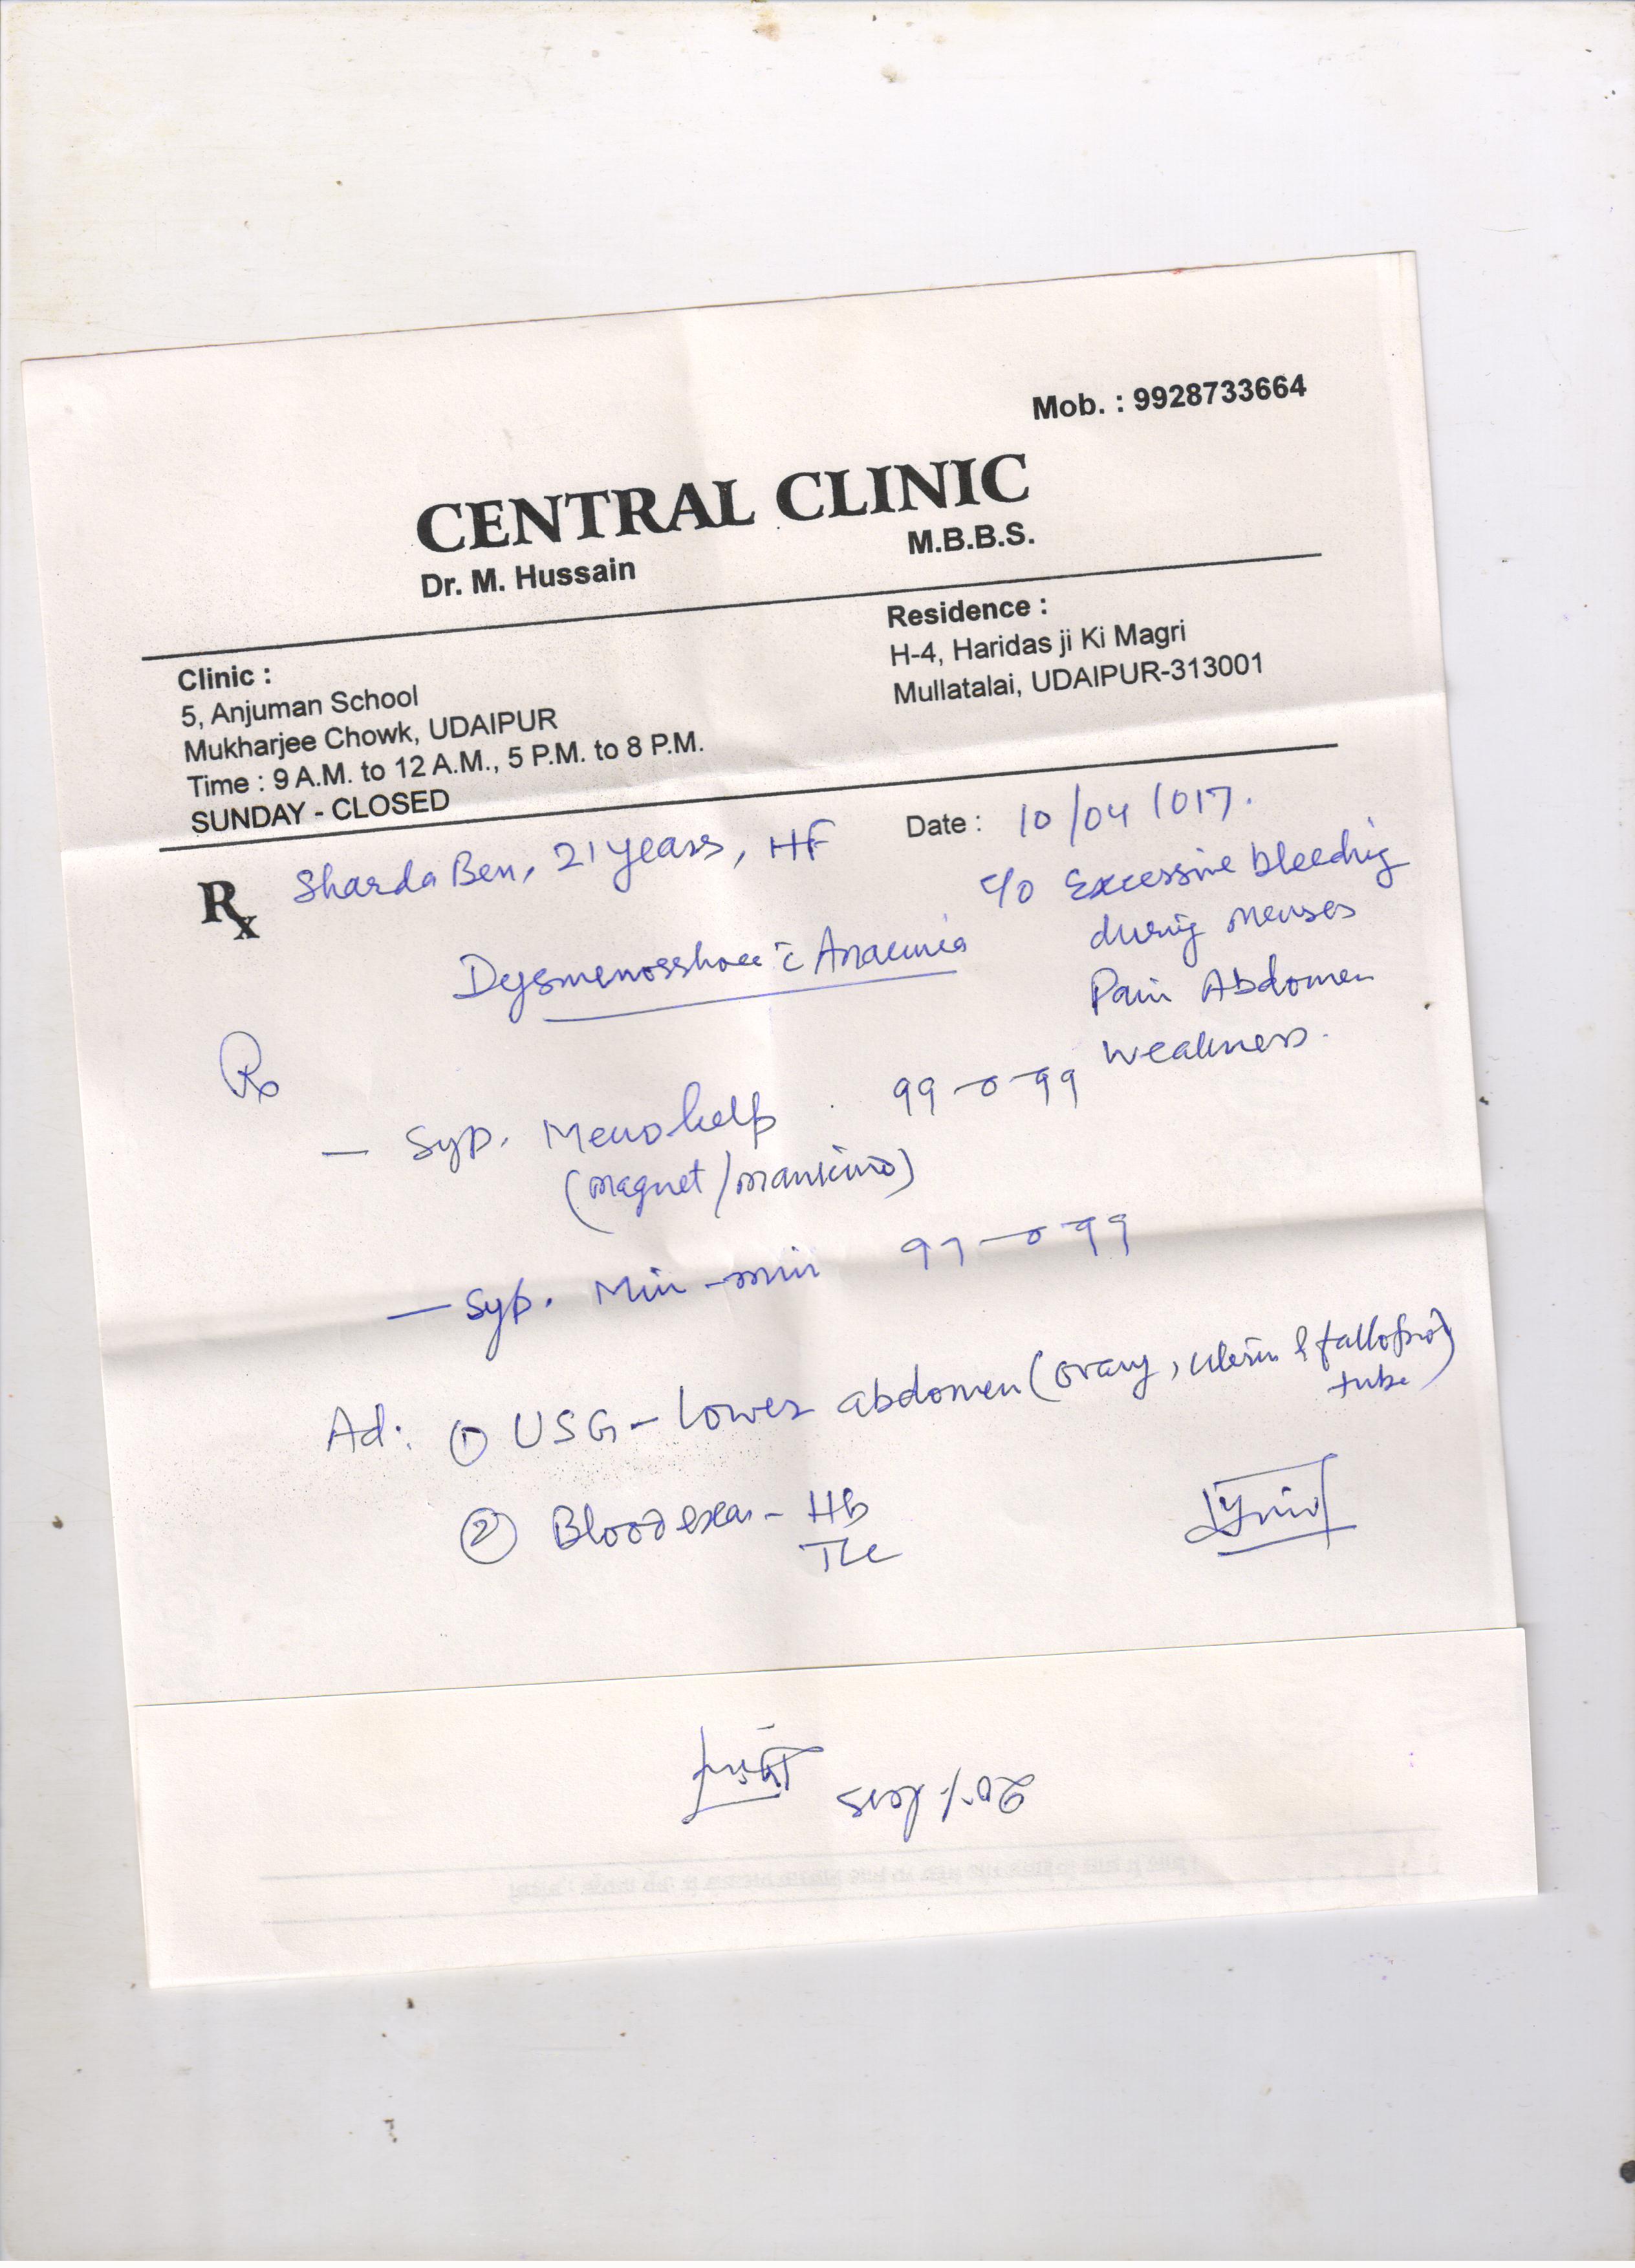 Mob. : 9928733664
CENTRAL CLINIC
Dr. M. Hussain
M.B.B.S.
Clinic :
5, Anjuman School
Mukharjee Chowk, UDAIPUR
Time : 9 A.M. to 12 A.M., 5 P.M. to 8 P.M.
SUNDAY - CLOSED
Residence :
H-4, Haridas ji Ki Magri
Mullatalai, UDAIPUR-313001
Date : 10/04/017.
Rx Sharda Ben, 21 years, HF
c/o Excessive bleeding
during menses
Pain Abdomen
weakness.
Dysmenorrhoea c̄ Anaemia
Rx
— Syp. Menohelp
(Magnet/Mankind)
— Syp. Min-min
Ad: ① USG - Lower abdomen (ovary, uterus & fallopian
tube)
② Blood exam - Hb
TLC
20%